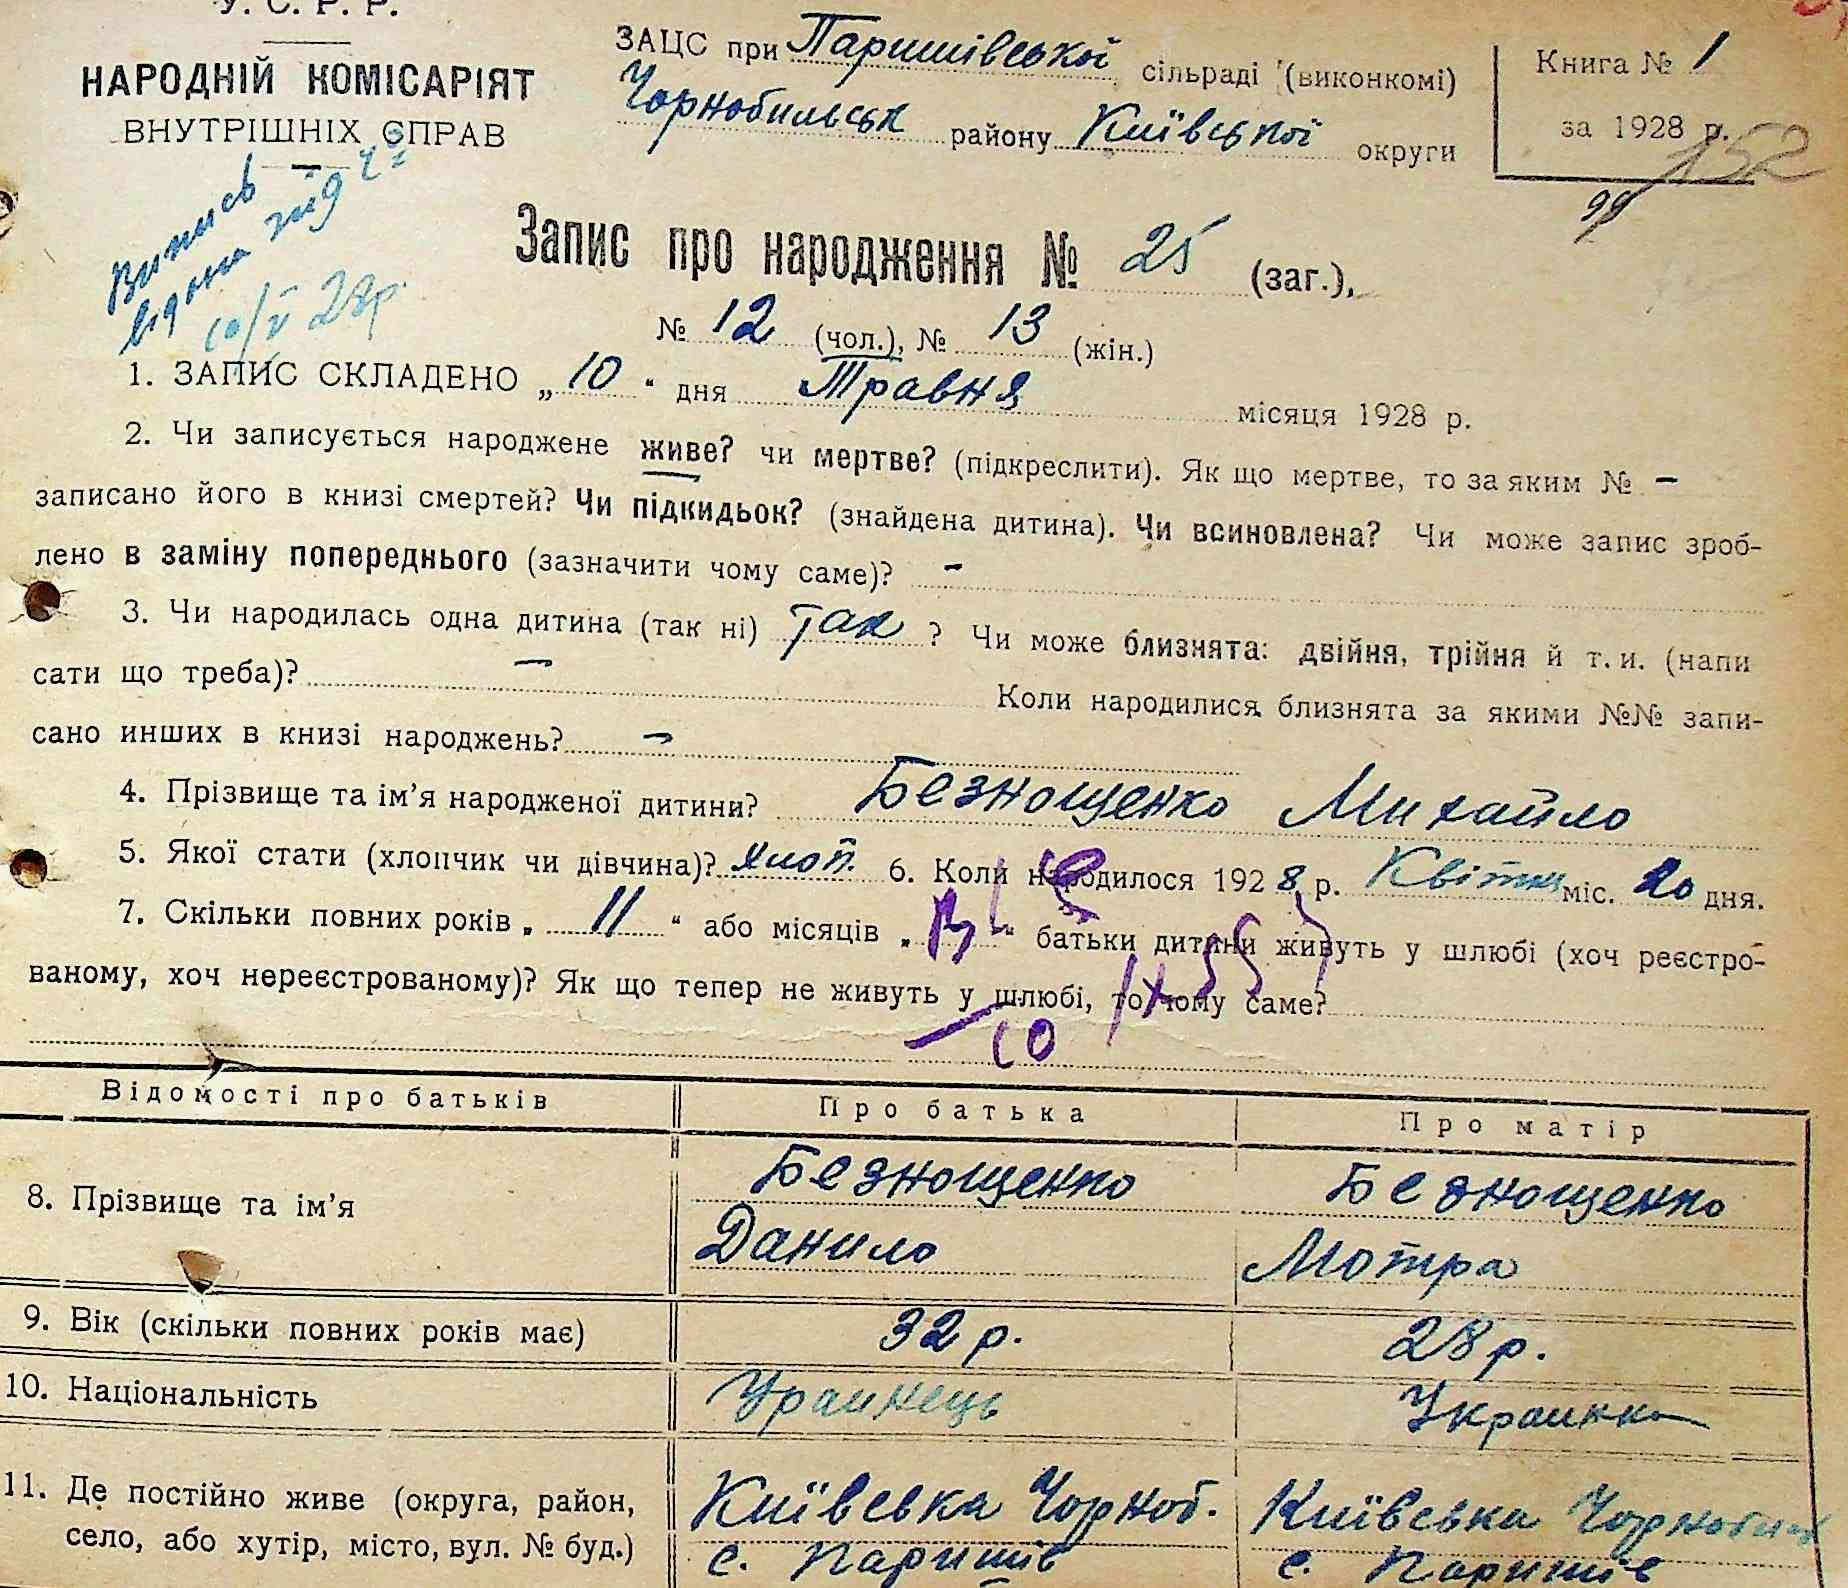 У. С. Р. Р.
НАРОДНІЙ КОМІСАРІЯТ
ВНУТРІШНІХ СПРАВ
ЗАЦС при Паришівської сільраді (виконкомі)
Чорнобильськ району Київської округи
Книга № 1
за 1928 р.
152
99
Випись
видана
10/V 28р.
Запис про народження № 25 (заг.),
№ 12 (чол.), № 13 (жін.)
1. ЗАПИС СКЛАДЕНО „ 10 “ дня Травня місяця 1928 р.
2. Чи записується народжене живе? чи мертве? (підкреслити). Як що мертве, то за яким № –
записано його в книзі смертей? Чи підкидьок? (знайдена дитина). Чи всиновлена? Чи може запис зроб-
лено в заміну попереднього (зазначити чому саме)? –
3. Чи народилась одна дитина (так ні) так ? Чи може близнята: двійня, трійня й т. и. (напи
сати що треба)? – Коли народилися близнята за якими №№ запи-
сано инших в книзі народжень? –
4. Прізвище та ім’я народженої дитини? Безнощенко Михайло
5. Якої стати (хлопчик чи дівчина)? хлоп. 6. Коли народилося 1928 р. Квітня міс. 20 дня.
7. Скільки повних років „ 11 “ або місяців „ “ батьки дитини живуть у шлюбі (хоч реєстро-
ваному, хоч нереєстрованому)? Як що тепер не живуть у шлюбі, то чому саме?
Відомості про батьків Про батька Про матір
8. Прізвище та ім’я Безнощенко Безнощенко
Данило Мотра
9. Вік (скільки повних років має) 32 р. 28 р.
10. Національність Украинець Украинка
11. Де постійно живе (округа, район, Київська Чорноб. Київська Чорнобил
село, або хутір, місто, вул. № буд.) с. Паришів с. Паришів